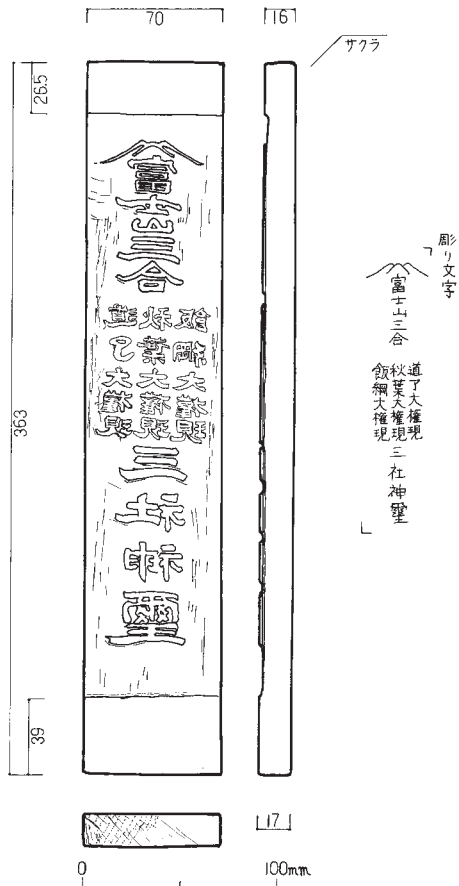 70
16
サクラ
26.5
363
39
富士山三合
道了大権現
秋葉大権現
飯綱大権現
三社神璽
彫り文字
「
富士山三合
道了大権現
秋葉大権現
飯綱大権現
三社神璽
」
17
0
100mm